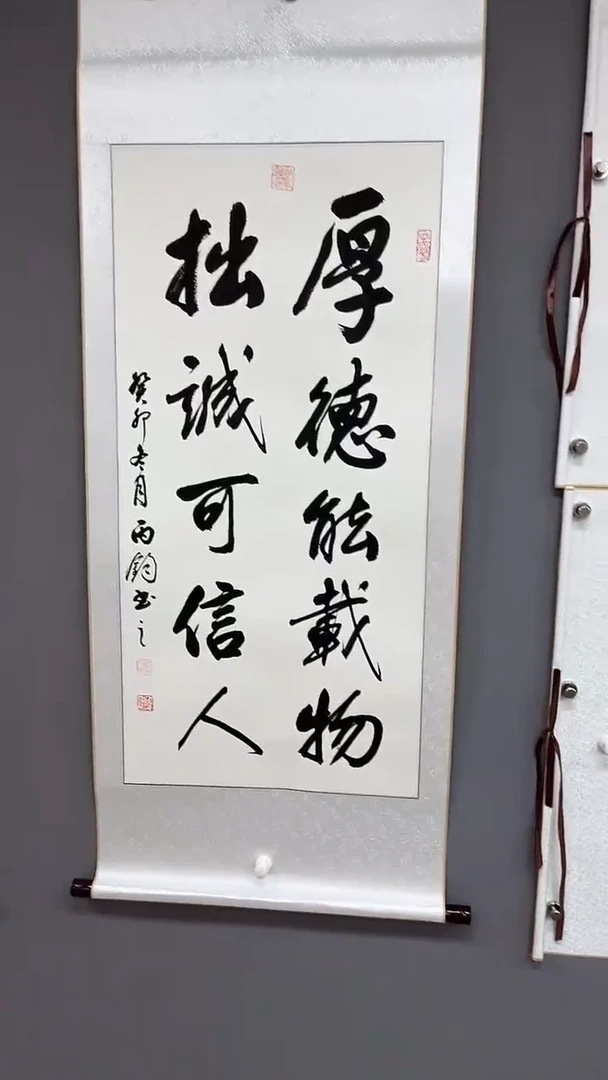 厚德能載物
拙誠可信人
癸卯冬月丙鈞書之